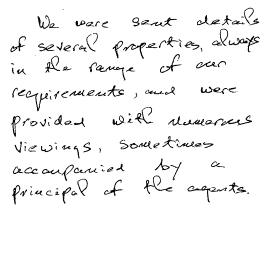 We were sent details
of several properties, always
in the range of our
requirements, and were
provided with numerous
viewings, sometimes
accompanied by a
principal of the agents.